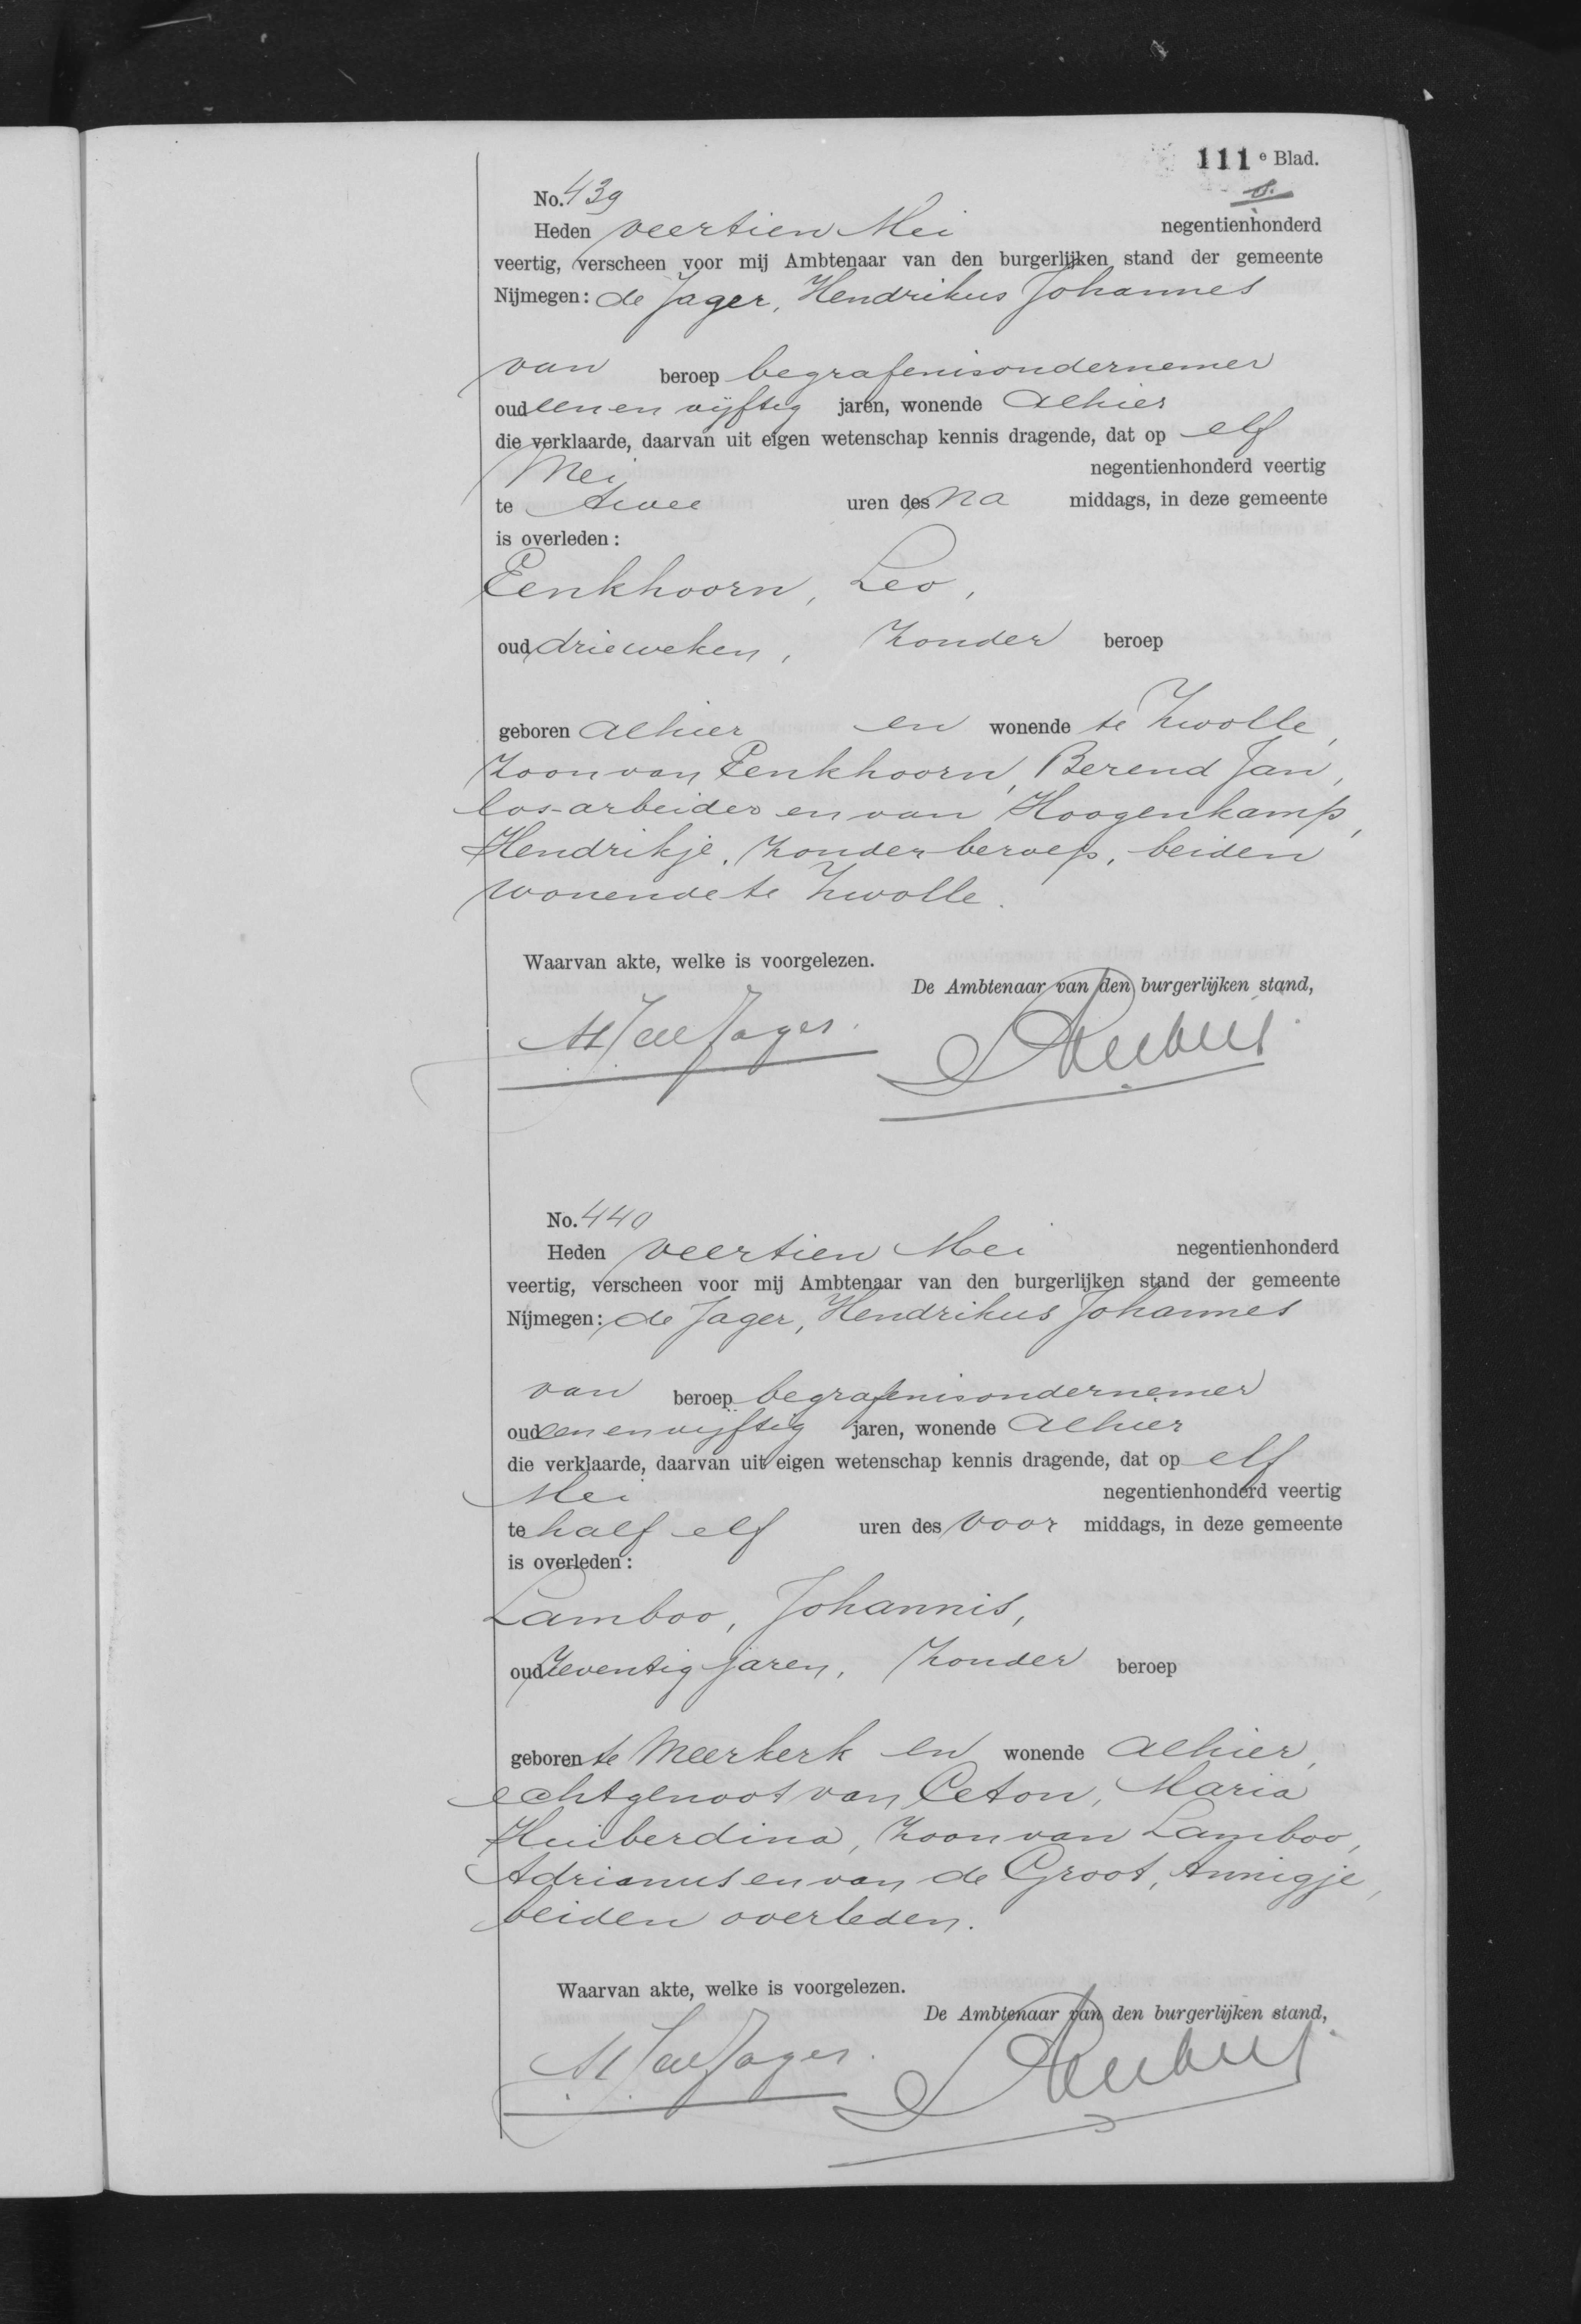 111e Blad.
No. 439
Heden veertien Mei negentienhonderd
veertig, verscheen voor mij Ambtenaar van den burgerlijken stand der gemeente
Nijmegen: de Jager, Hendrikus Johannes
van beroep begrafenisondernemer
oud eenen vijftig jaren, wonende alhier
die verklaarde, daarvan uit eigen wetenschap kennis dragende, dat op elf
Mei negentienhonderd veertig
te twee uren des na middags, in deze gemeente
is overleden:
Eenkhoorn, Leo,
oud drie weken, zonder beroep
geboren alhier en wonende te Zwolle,
zoon van Eenkhoorn, Berend Jan,
los-arbeider en van Hoogenkamp,
Hendrikje, zonder beroep, beiden
wonende te Zwolle.
Waarvan akte, welke is voorgelezen.
De Ambtenaar van den burgerlijken stand,
HJ de Jager.
No. 440
Heden veertien Mei negentienhonderd
veertig, verscheen voor mij Ambtenaar van den burgerlijken stand der gemeente
Nijmegen: de Jager, Hendrikus Johannes
van beroep begrafenisondernemer
oud eenenvijftig jaren, wonende alhier
die verklaarde, daarvan uit eigen wetenschap kennis dragende, dat op elf
Mei negentienhonderd veertig
te half elf uren des voor middags, in deze gemeente
is overleden:
Lamboo, Johannis,
oud zeventig jaren, zonder beroep
geboren te Meerkerk en wonende alhier,
echtgenoot van Ceton, Maria
Huiberdina, zoon van Lamboo,
Adrianus en van de Groot, Annigje,
beiden overleden.
Waarvan akte, welke is voorgelezen.
De Ambtenaar van den burgerlijken stand,
HJ de Jager.